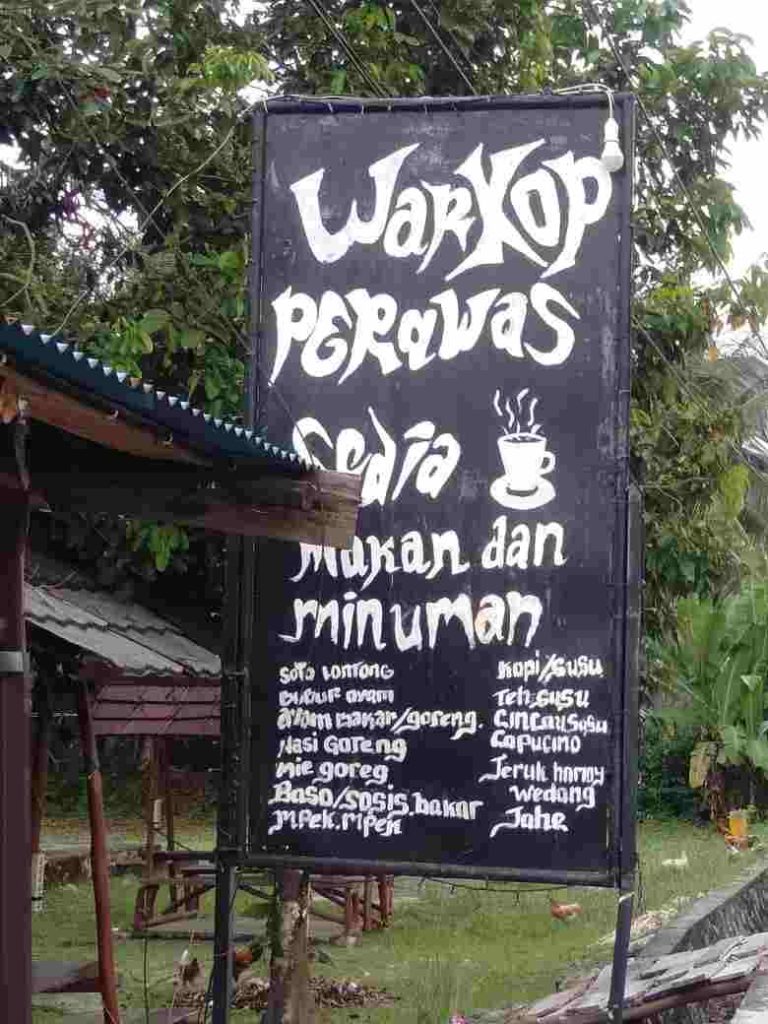 Warkop
PERAWAS
Sedia
Makan dan
minuman
Soto Lontong
Bubur ayam
Ayam bakar/goreng.
Nasi Goreng
mie goreg
Baso/sosis.bakar
MPek.MPek
Kopi/susu
Teh.susu
Cincaususu
Capucino
Jeruk hanny
wedang
Jahe